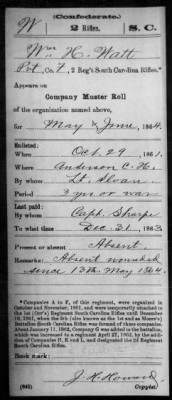 (Confederate.)
W 2 Rifles. S. C.
Wm. H. Watt
Pvt, Co. F, 2 Reg't South Carolina Rifles.*
Appears on
Company Muster Roll
of the organization named above,
for May & June, 1864.
Enlisted:
When Oct. 29, 1861.
Where Anderson C. H.
By whom Lt. Sloan
Period 3 yrs or war
Last paid:
By whom Capt. Sharpe
To what time Dec. 31, 1863
Present or absent Absent
Remarks: Absent wounded
since 13th May 1864.
*Companies A to F, of this regiment, were organized in
October and November, 1861, and were temporarily attached to
the 1st (Orr's) Regiment South Carolina Rifles until December
Battalion South Carolina Rifles was formed of these companies.
About January 11, 1862, Company G was added to the battalion,
which was increased to a regiment April 27, 1862, by the addi-
tion of Companies H, I and K, and designated the 2d Regiment
South Carolina Rifles.
Book mark:
J. H. Howard
(642) Copyist.